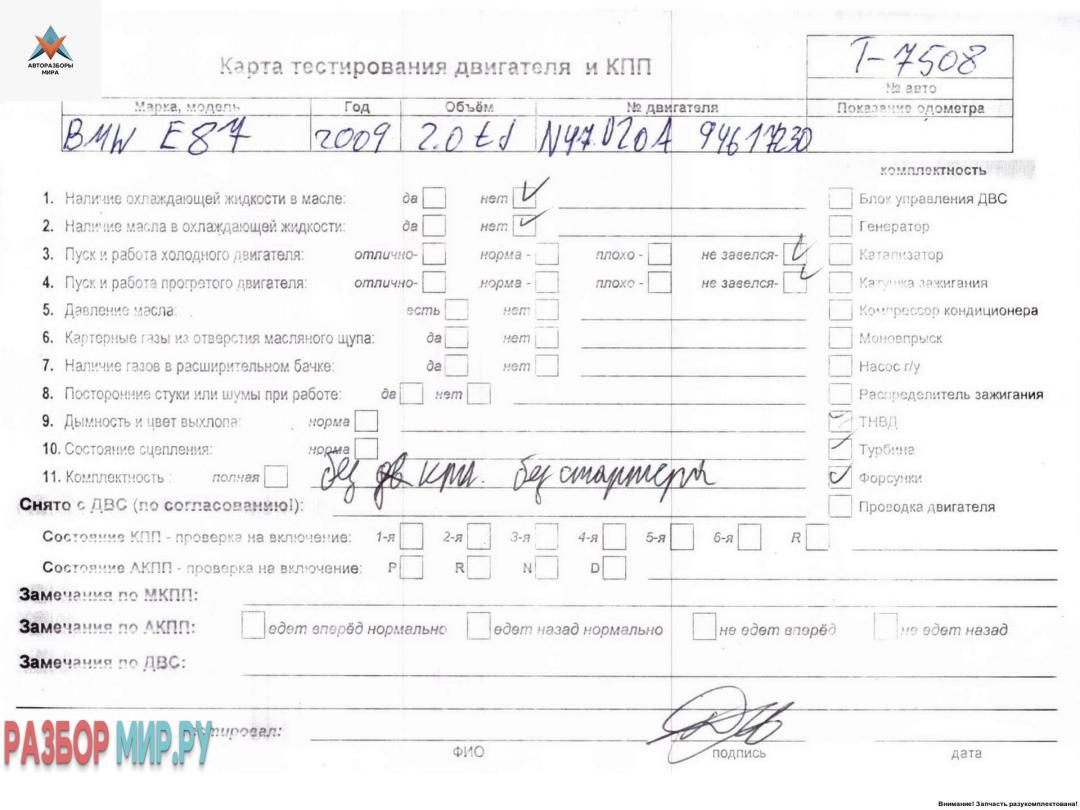 АВТОРАЗБОРЫ
МИРА
Карта тестирования двигателя и КПП
Т-7508
№ авто
Марка, модель Год Объём № двигателя Показание одометра
BMW E87 2009 2.0 td N47D20A 94617230
комплектность
1. Наличие охлаждающей жидкости в масле: да нет Блок управления ДВС
2. Наличие масла в охлаждающей жидкости: да нет Генератор
3. Пуск и работа холодного двигателя: отлично- норма - плохо - не завелся- Катализатор
4. Пуск и работа прогретого двигателя: отлично- норма - плохо - не завелся- Катушка зажигания
5. Давление масла: есть нет Компрессор кондиционера
6. Картерные газы из отверстия масляного щупа: да нет Моновпрыск
7. Наличие газов в расширительном бачке: да нет Насос г/у
8. Посторонние стуки или шумы при работе: да нет Распределитель зажигания
9. Дымность и цвет выхлопа: норма ТНВД
10. Состояние сцепления: норма Турбина
11. Комплектность : полная без кпп. без стартера Форсунки
Снято с ДВС (по согласованию!): Проводка двигателя
Состояние КПП - проверка на включение: 1-я 2-я 3-я 4-я 5-я 6-я R
Состояние АКПП - проверка на включение: P R N D
Замечания по МКПП:
Замечания по АКПП: едет вперёд нормально едет назад нормально не едет вперёд не едет назад
Замечания по ДВС:
РАЗБОР МИР.РУ
ФИО подпись дата
Внимание! Запчасть разукомплектована!